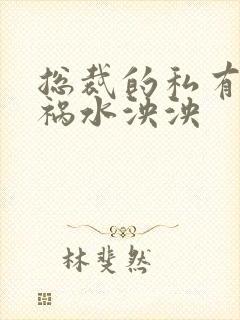 总裁的私有
祸水泱泱
林斐然